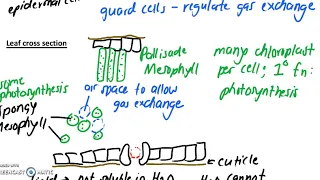 epidermal cells
guard cells - regulate gas exchange
Leaf cross section
Pallisade
Mesophyll
many chloroplast
per cell; 1° fn:
photosynthesis
some
photosynthesis
air space to allow
gas exchange
Spongy
Mesophyll
= cuticle
not soluble in H₂O
cannot